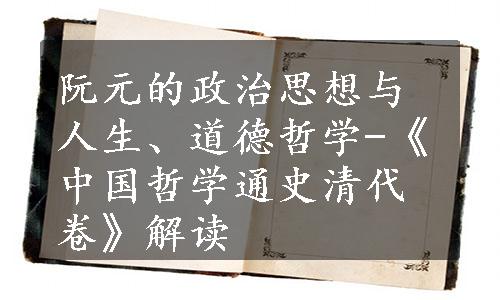 阮元的政治思想与
人生、道德哲学-《
中国哲学通史清代
卷》解读